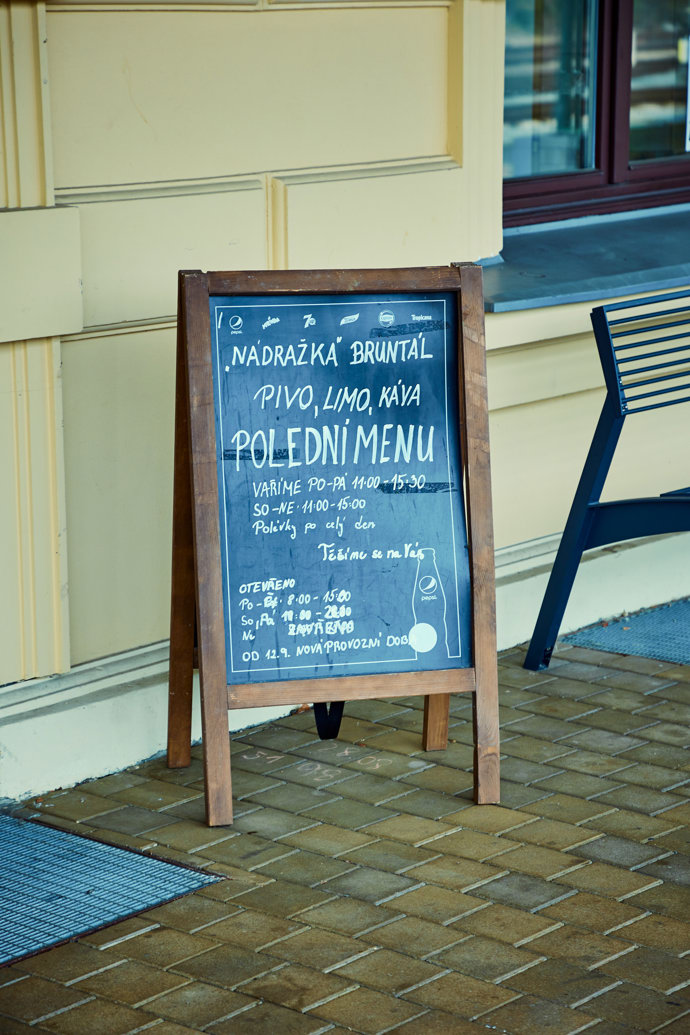 pepsi Mirinda 7 Tropicana
"NÁDRAŽKA" BRUNTÁL
PIVO, LIMO, KÁVA
POLEDNÍ MENU
VAŘÍME PO-PÁ 11:00-15:30
SO-NE 11:00-15:00
Polévky po celý den
Těšíme se na Vás
OTEVŘENO
pepsi
Po- 8:00-15:00
So,
Ne
OD 12.9. NOVÁ PROVOZNÍ DOBA